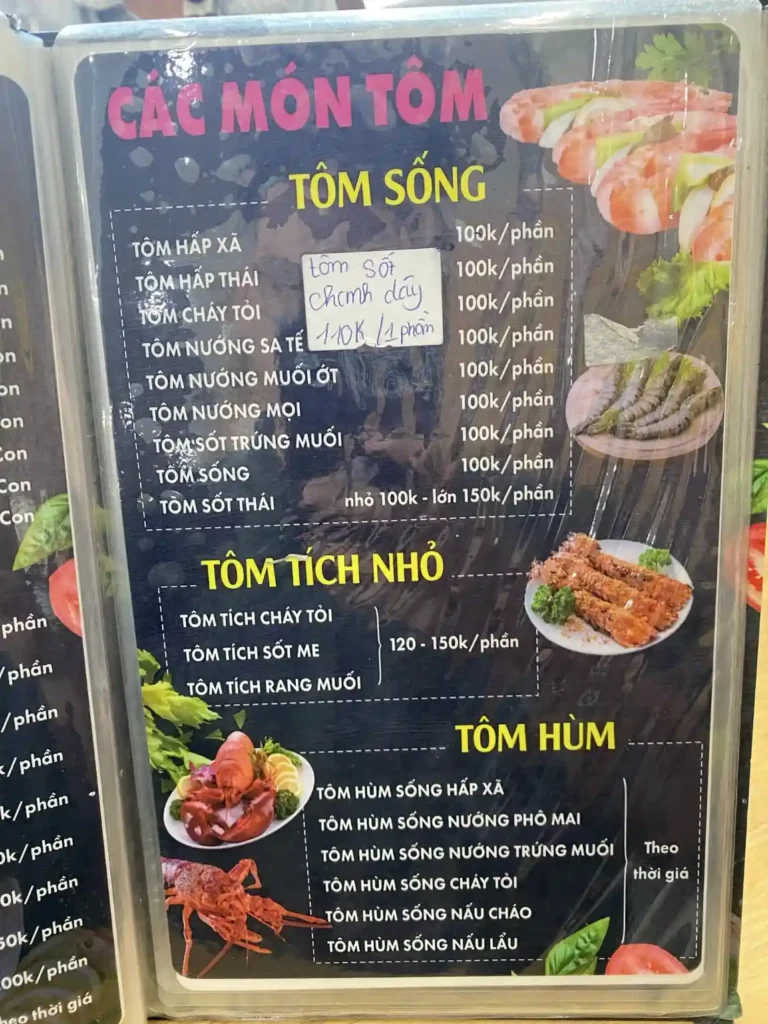 CÁC MÓN TÔM
TÔM SỐNG
TÔM HẤP XÃ 100k/phần
TÔM HẤP THÁI 100k/phần
TÔM CHÁY TỎI 100k/phần
TÔM NƯỚNG SA TẾ 100k/phần
TÔM NƯỚNG MUỐI ỚT 100k/phần
TÔM NƯỚNG MỌI 100k/phần
TÔM SỐT TRỨNG MUỐI 100k/phần
TÔM SỐNG 100k/phần
TÔM SỐT THÁI nhỏ 100k - lớn 150k/phần
tôm sốt
chanh dây
110K/1 phần
TÔM TÍCH NHỎ
TÔM TÍCH CHÁY TỎI
TÔM TÍCH SỐT ME
TÔM TÍCH RANG MUỐI
120 - 150k/phần
TÔM HÙM
TÔM HÙM SỐNG HẤP XÃ
TÔM HÙM SỐNG NƯỚNG PHÔ MAI
TÔM HÙM SỐNG NƯỚNG TRỨNG MUỐI
TÔM HÙM SỐNG CHÁY TỎI
TÔM HÙM SỐNG NẤU CHÁO
TÔM HÙM SỐNG NẤU LẨU
Theo
thời giá
Con
Con
phần
/phần
/phần
/phần
k/phần
0k/phần
0k/phần
50k/phần
00k/phần
heo thời giá